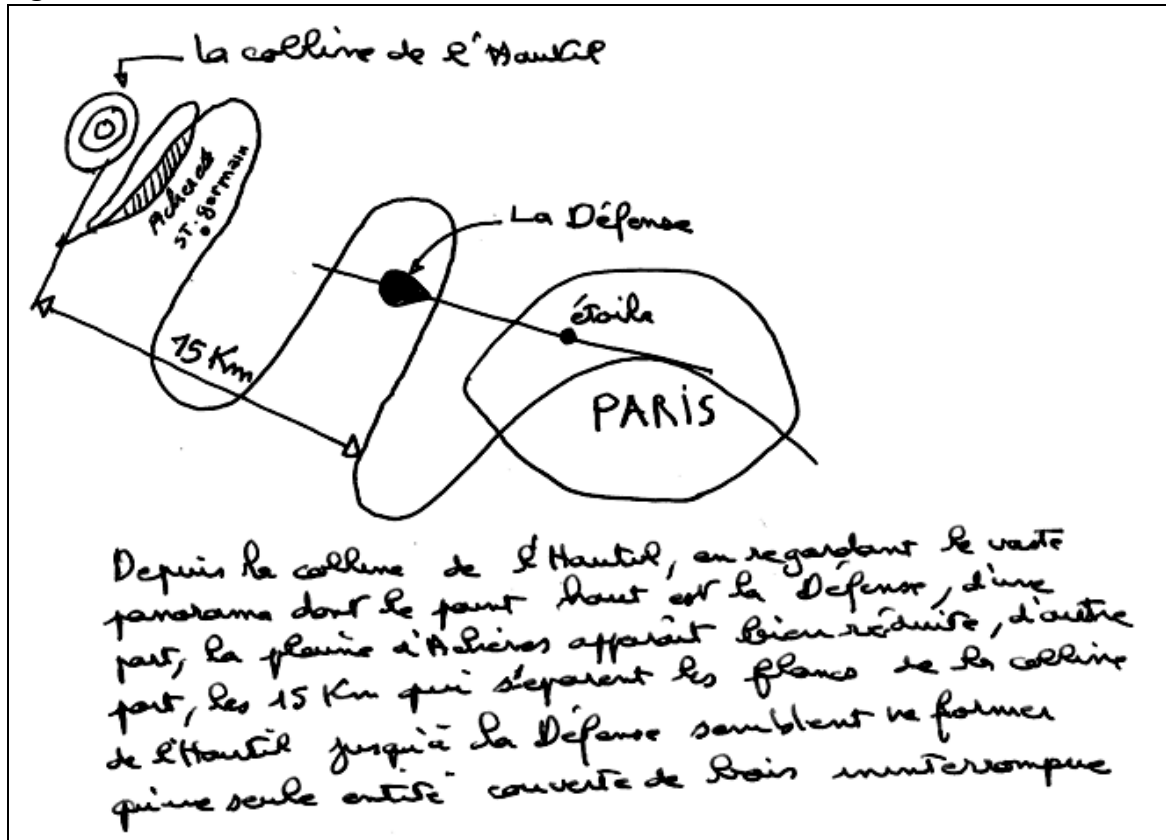 la colline de l'Hautil
Acheres
ST. germain
La Défense
étoile
15 Km
PARIS
Depuis la colline de l'Hautil, en regardant le vaste
panorama dont le point haut est la Défense, d'une
part, la plaine d'Achères apparaît bien réduite, d'autre
part, les 15 Km qui séparent les flancs de la colline
de l'Hautil jusqu'à la Défense semblent ne former
qu'une seule entité couverte de bois ininterrompue